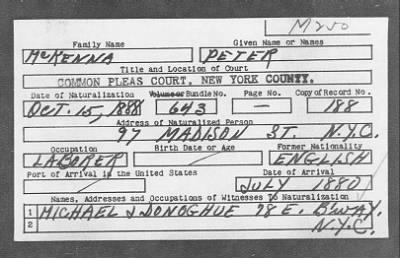 M250
Family Name Given Name or Names
McKENNA PETER
Title and Location of Court
COMMON PLEAS COURT, NEW YORK COUNTY.
Date of Naturalization Volume or Bundle No. Page No. Copy of Record No.
OCT. 15, 1888 643 — 188
Address of Naturalized Person
97 MADISON ST. N.Y.C.
Occupation Birth Date or Age Former Nationality
LABORER ENGLISH
Port of Arrival in the United States Date of Arrival
JULY 1880
Names, Addresses and Occupations of Witnesses To Naturalization
1 MICHAEL J DONOGHUE 78 E. BWAY.
2 N.Y.C.